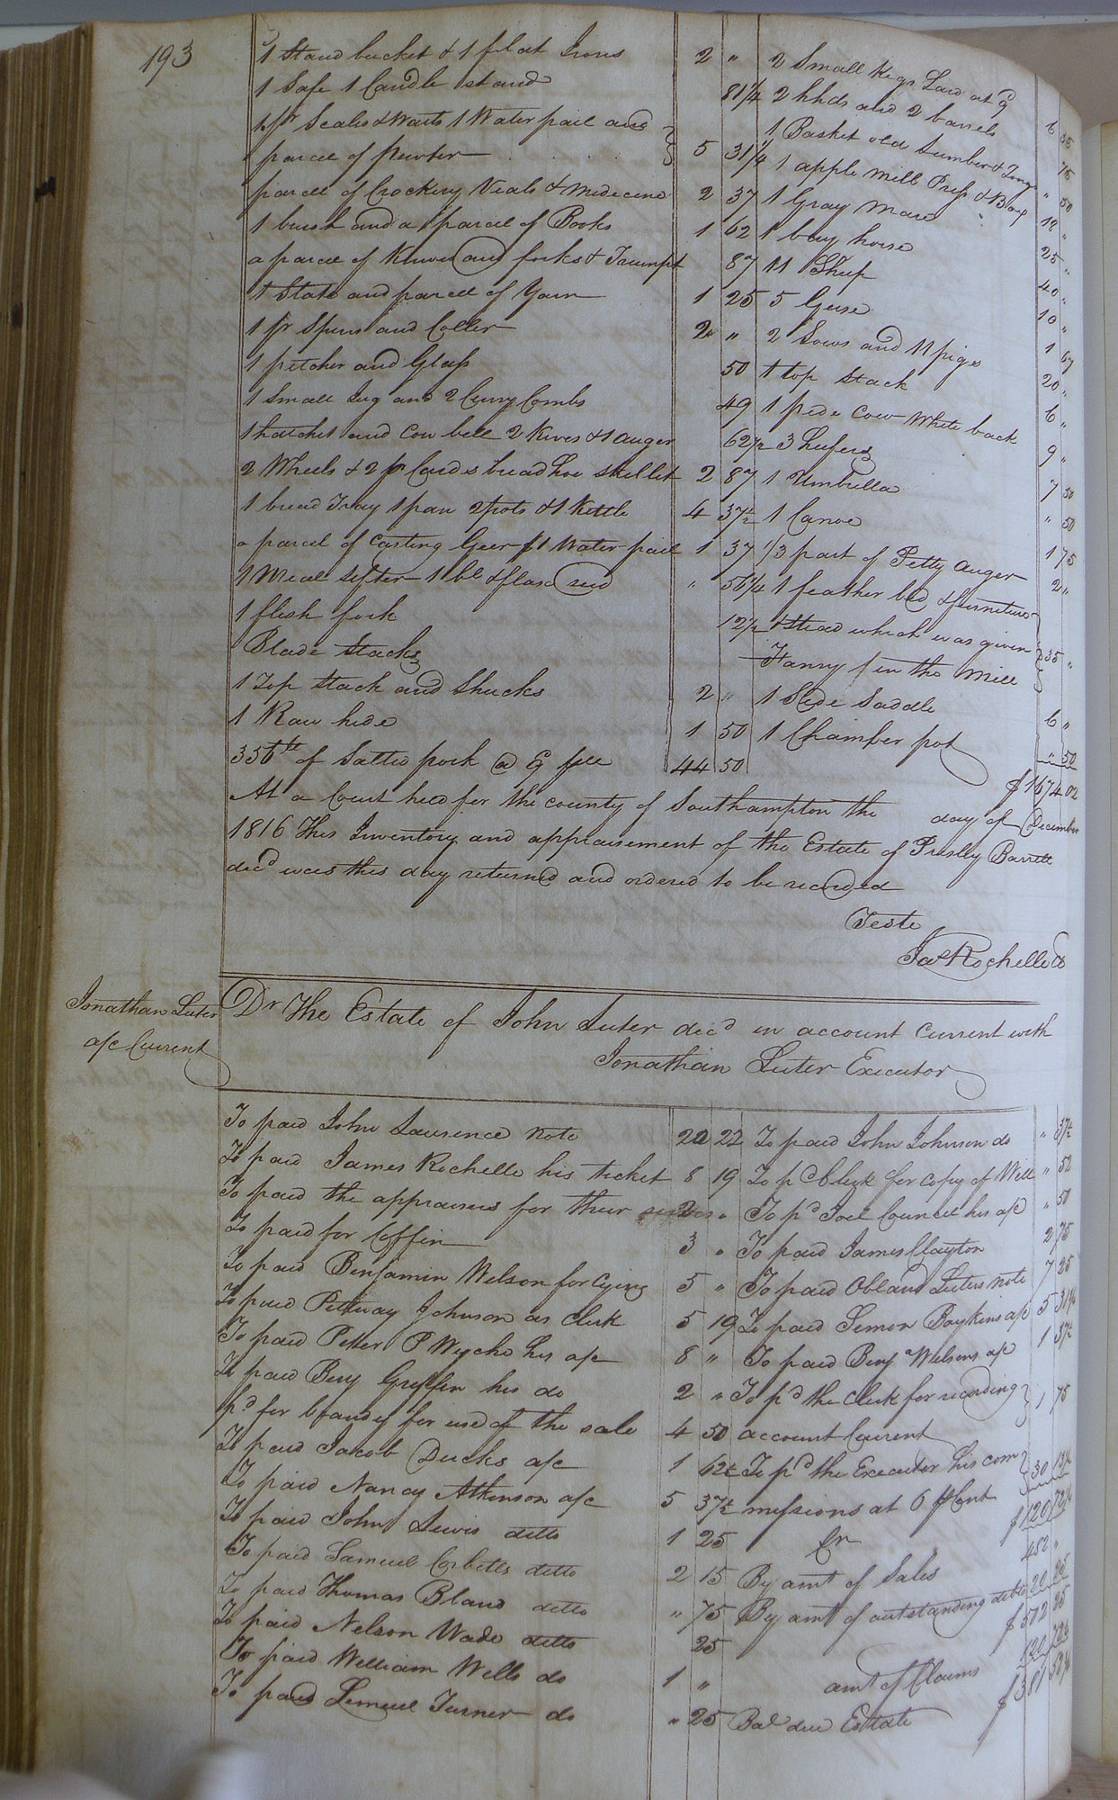 193
1 Stand bucket & 1 flat Irons 2 "
1 Safe 1 Candle stand 81¼
1 pr Scales & Waits 1 Water pail and
parcel of pewter 5 31¼
parcel of Crockery Vials & Medicine 2 37
1 brush and a parcel of Books 1 62
a parcel of Knives and forks & Trumpt 87
1 State and parcel of Yarn 1 25
1 pr Spurs and Coller 2 "
1 pitcher and Glass 50
1 Small Jug and 2 Curry Combs 49
1 hatchet and Cow bell 2 Kives & 1 auger 62½
2 Wheels & 2 pr Cards bread hoe skillet 2 87
1 bread Tray 1 pan 2 pots & 1 Kettle 4 37½
a parcel of Casting Geer & 1 Water pail 1 37
1 Meal Sifter 1 bl & flax " 56¼
1 flesh fork 12½
Blade Stacks
1 Top Stack and Shucks 2 "
1 Raw hide 1 50
356 lb of Salted pork @ 44 50
2 Small Kegs Lard at 9 6 35
2 hhds and 2 barrels 75
1 Basket old lumber & " 50
1 apple Mill Press & 12 "
1 Gray Mare 25 "
1 bay horse 40 "
11 Sheep 10 "
5 Geese 1 67
2 Sows and 11 pigs 20 "
1 top Stack 6 "
1 pide Cow White back 9 "
3 heifers 7 50
1 Umbrella " 50
1 Canoe 1 75
1/3 part of Petty Auger 2 "
1 feather bed & furniture
& Stead which was given
Fanny in the Will 35 "
1 Side Saddle 6 "
1 Chamber pot " 50
$ 1674 02
At a Court held for the county of Southampton the day of December
1816 This Inventory and appraisement of the Estate of Presley Barrett
decd was this day returned and ordered to be recorded
Teste
Jas Rochelle
Jonathan Luter
a/c Current
Dr The Estate of John Luter decd in account Current with
Jonathan Luter Executor
To paid John Laurence note 22 22
To paid James Rochelle his ticket 8 19
To paid the appraisers for their 2 "
To paid for Coffin 3 "
To paid Benjamin Nelson for Crying 5 "
To paid Pettway Johnson as Clerk 5 19
To paid Petter P Wyche his a/c 8 "
To paid Benj Griffin his do 2 "
pd for brandy for use of the sale 4 50
To paid Jacob Ducks a/c 1 62½
To paid Nancy Atkinson a/c 5 37½
To paid John Lewis ditto 1 25
To paid Samuel Corbitts ditto 2 15
To paid Thomas Bland ditto " 75
To paid Nelson Wade ditto 25
To paid William Wells do 1 "
To paid Lemuel Turner do " 25
To paid John Johnson do " 37½
To pd Clerk for Copy of Will " 50
To pd Joel Council his a/c " 50
To paid James Clayton 2 75
To paid Obland Luters note 7 25
To paid Simon Boykins a/c 5 31¼
To paid Benj Nelsons a/c 1 37½
To pd the Clerk for recording
account Current 1 75
To pd the Executor his com
missions at 6 p Cent 30
$ 120
Cr
By amt of Sales 482 "
By amt of outstanding debts 20 25
$ 502 25
amt of Claims 120
Bal due Estate $ 381